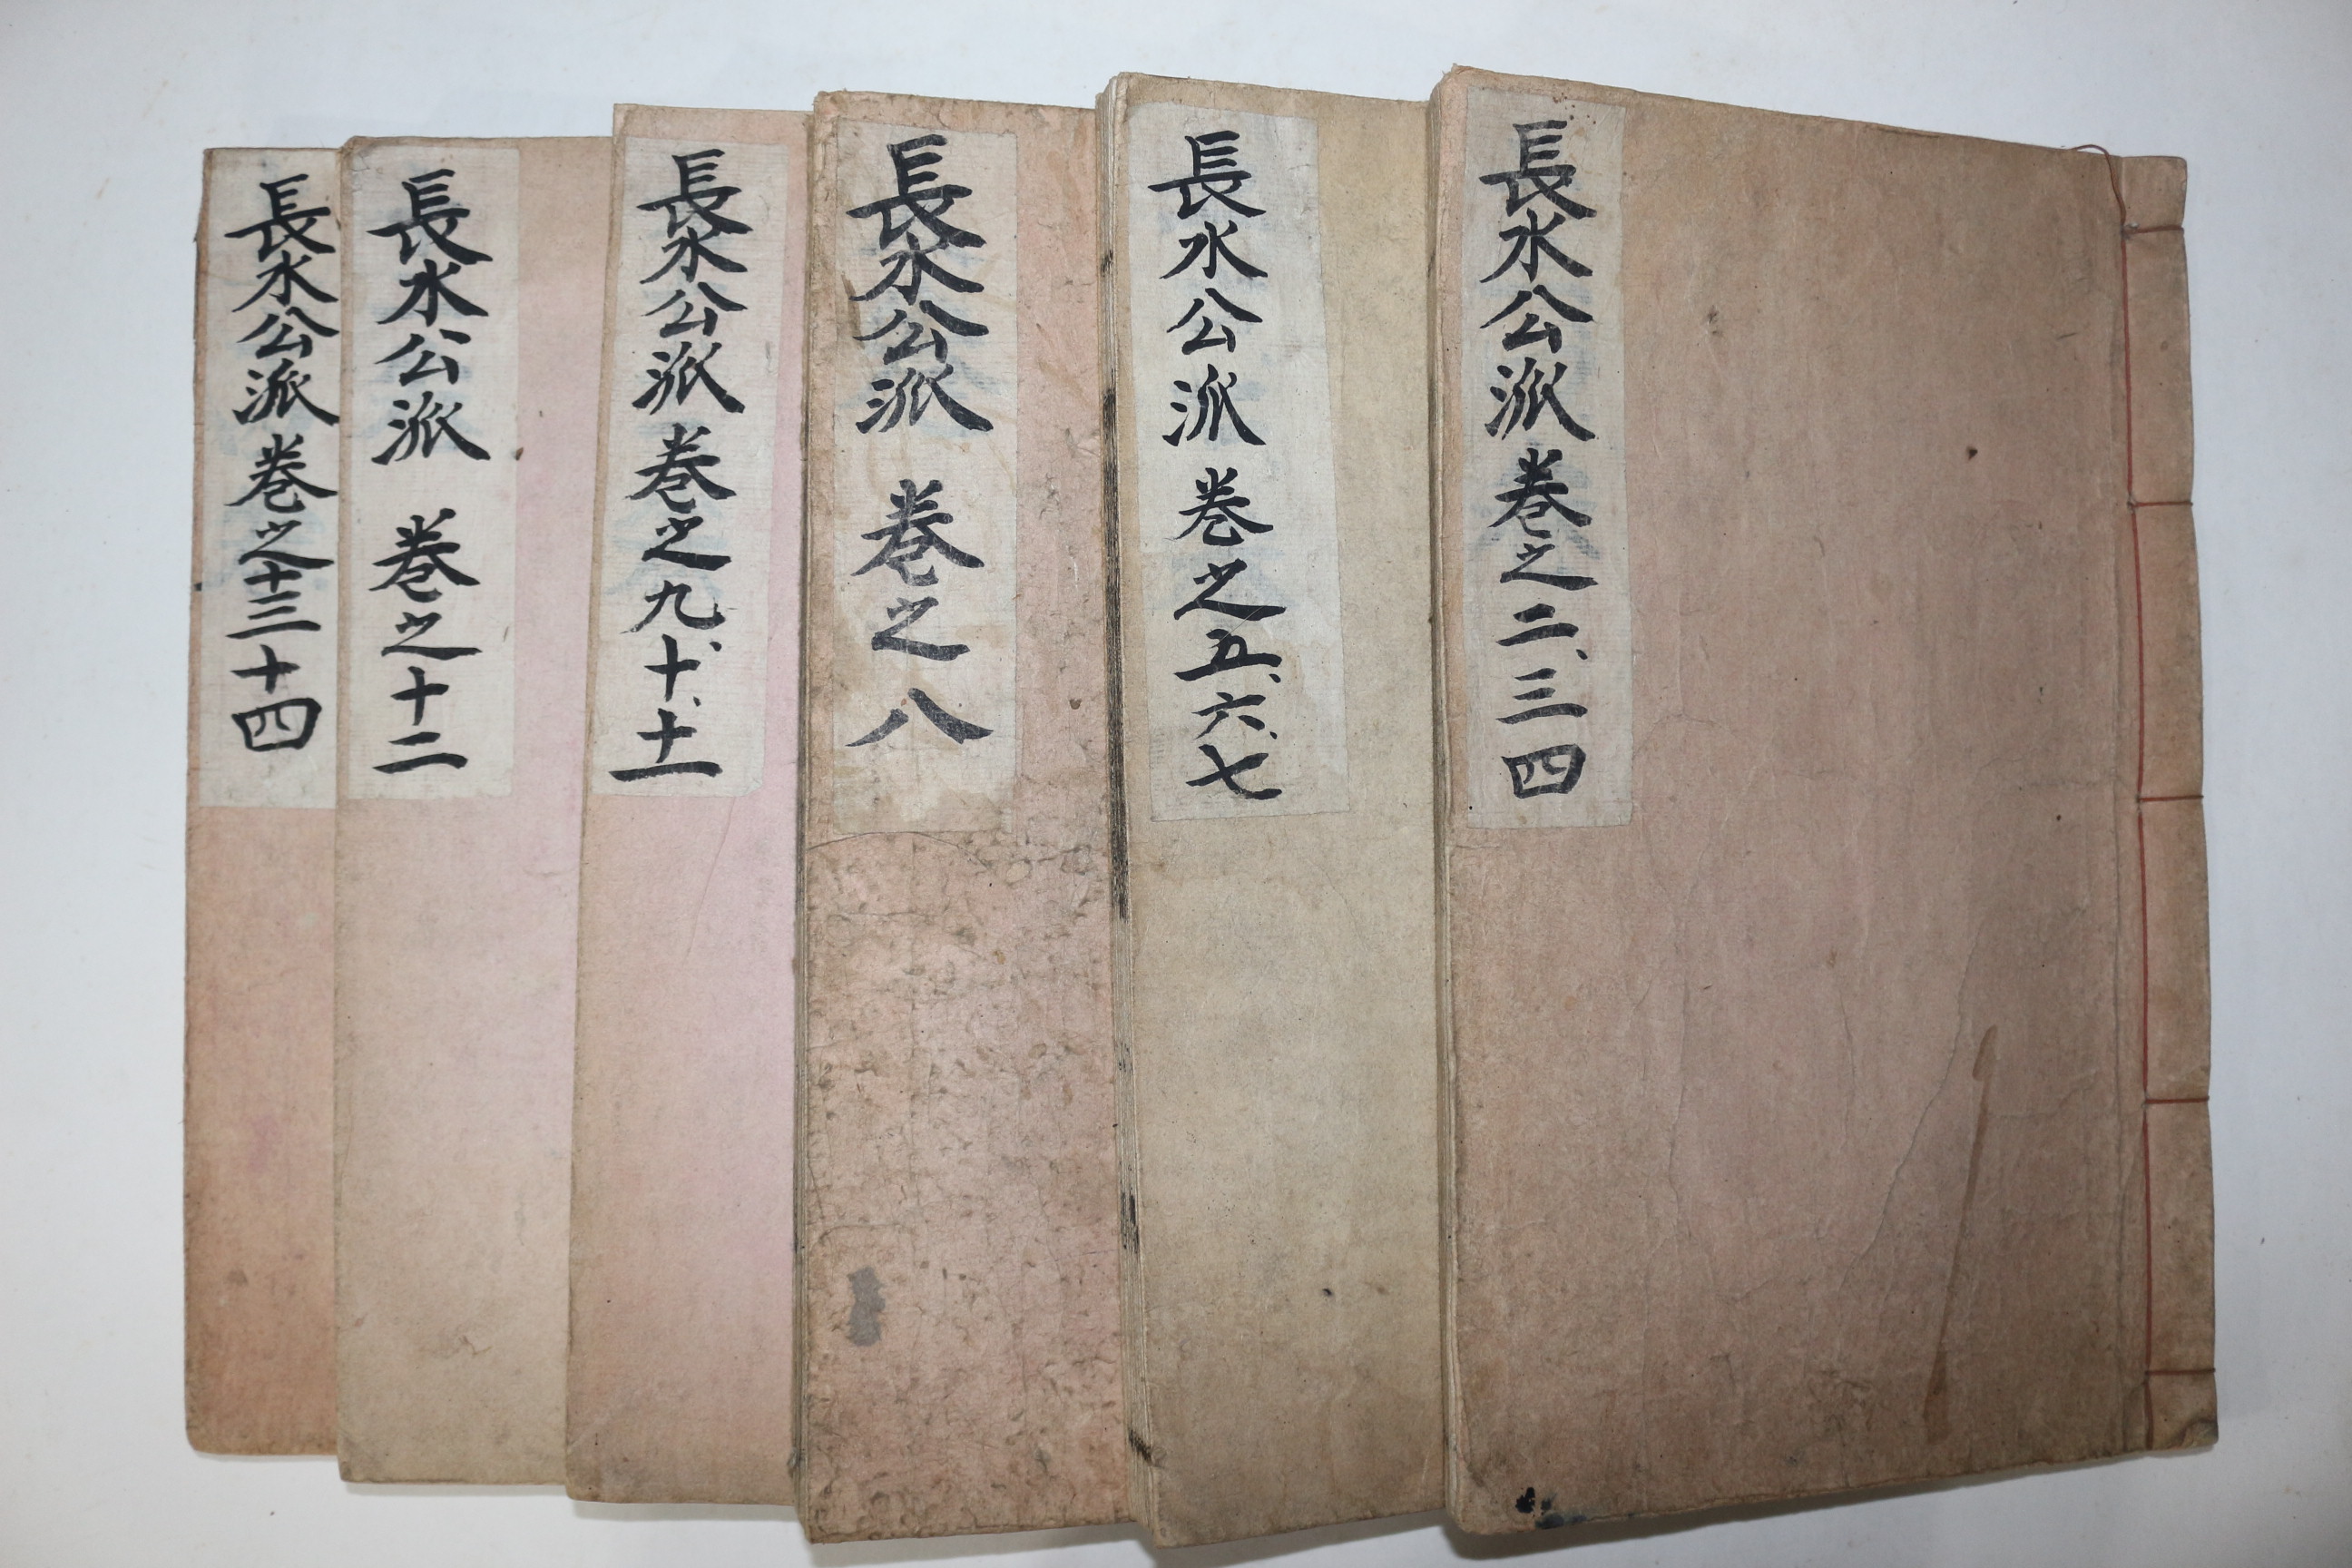 長水公派 卷之二、三四
長水公派 卷之五、六、七
長水公派 卷之八
長水公派 卷之九、十、十一
長水公派 卷之十二
長水公派 卷之十三十四